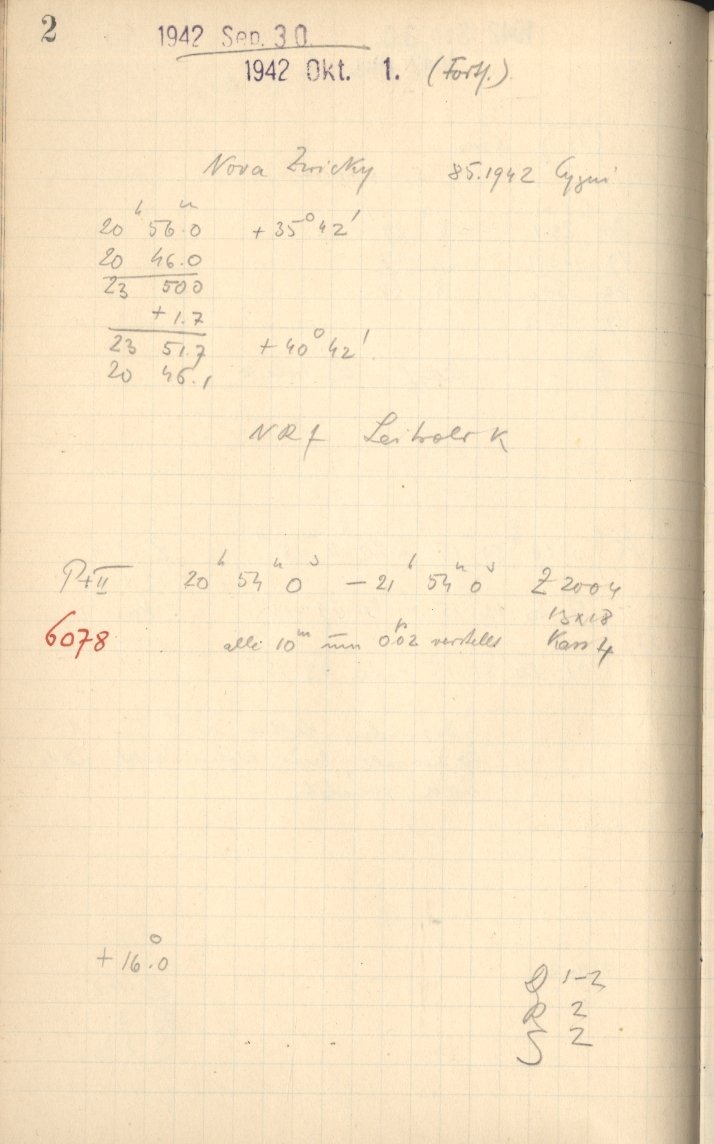 2
1942 Sep. 30.
1942 Okt. 1. (Forts.)
Nova Zwicky 85.1942 Cygni
20ʰ 56ᵐ.0 +35°42'
20 46.0
23 50 0
+1.7
23 51.7 +40°42'
20 46.1
NRf
20ʰ 54ᵐ 0ˢ — 21ʰ 54ᵐ 0ˢ Z 2004
13x18
6078 alle 10ᵐ um 0.02 verstellt Kass 4
+16°.0
D 1-2
R 2
S 2